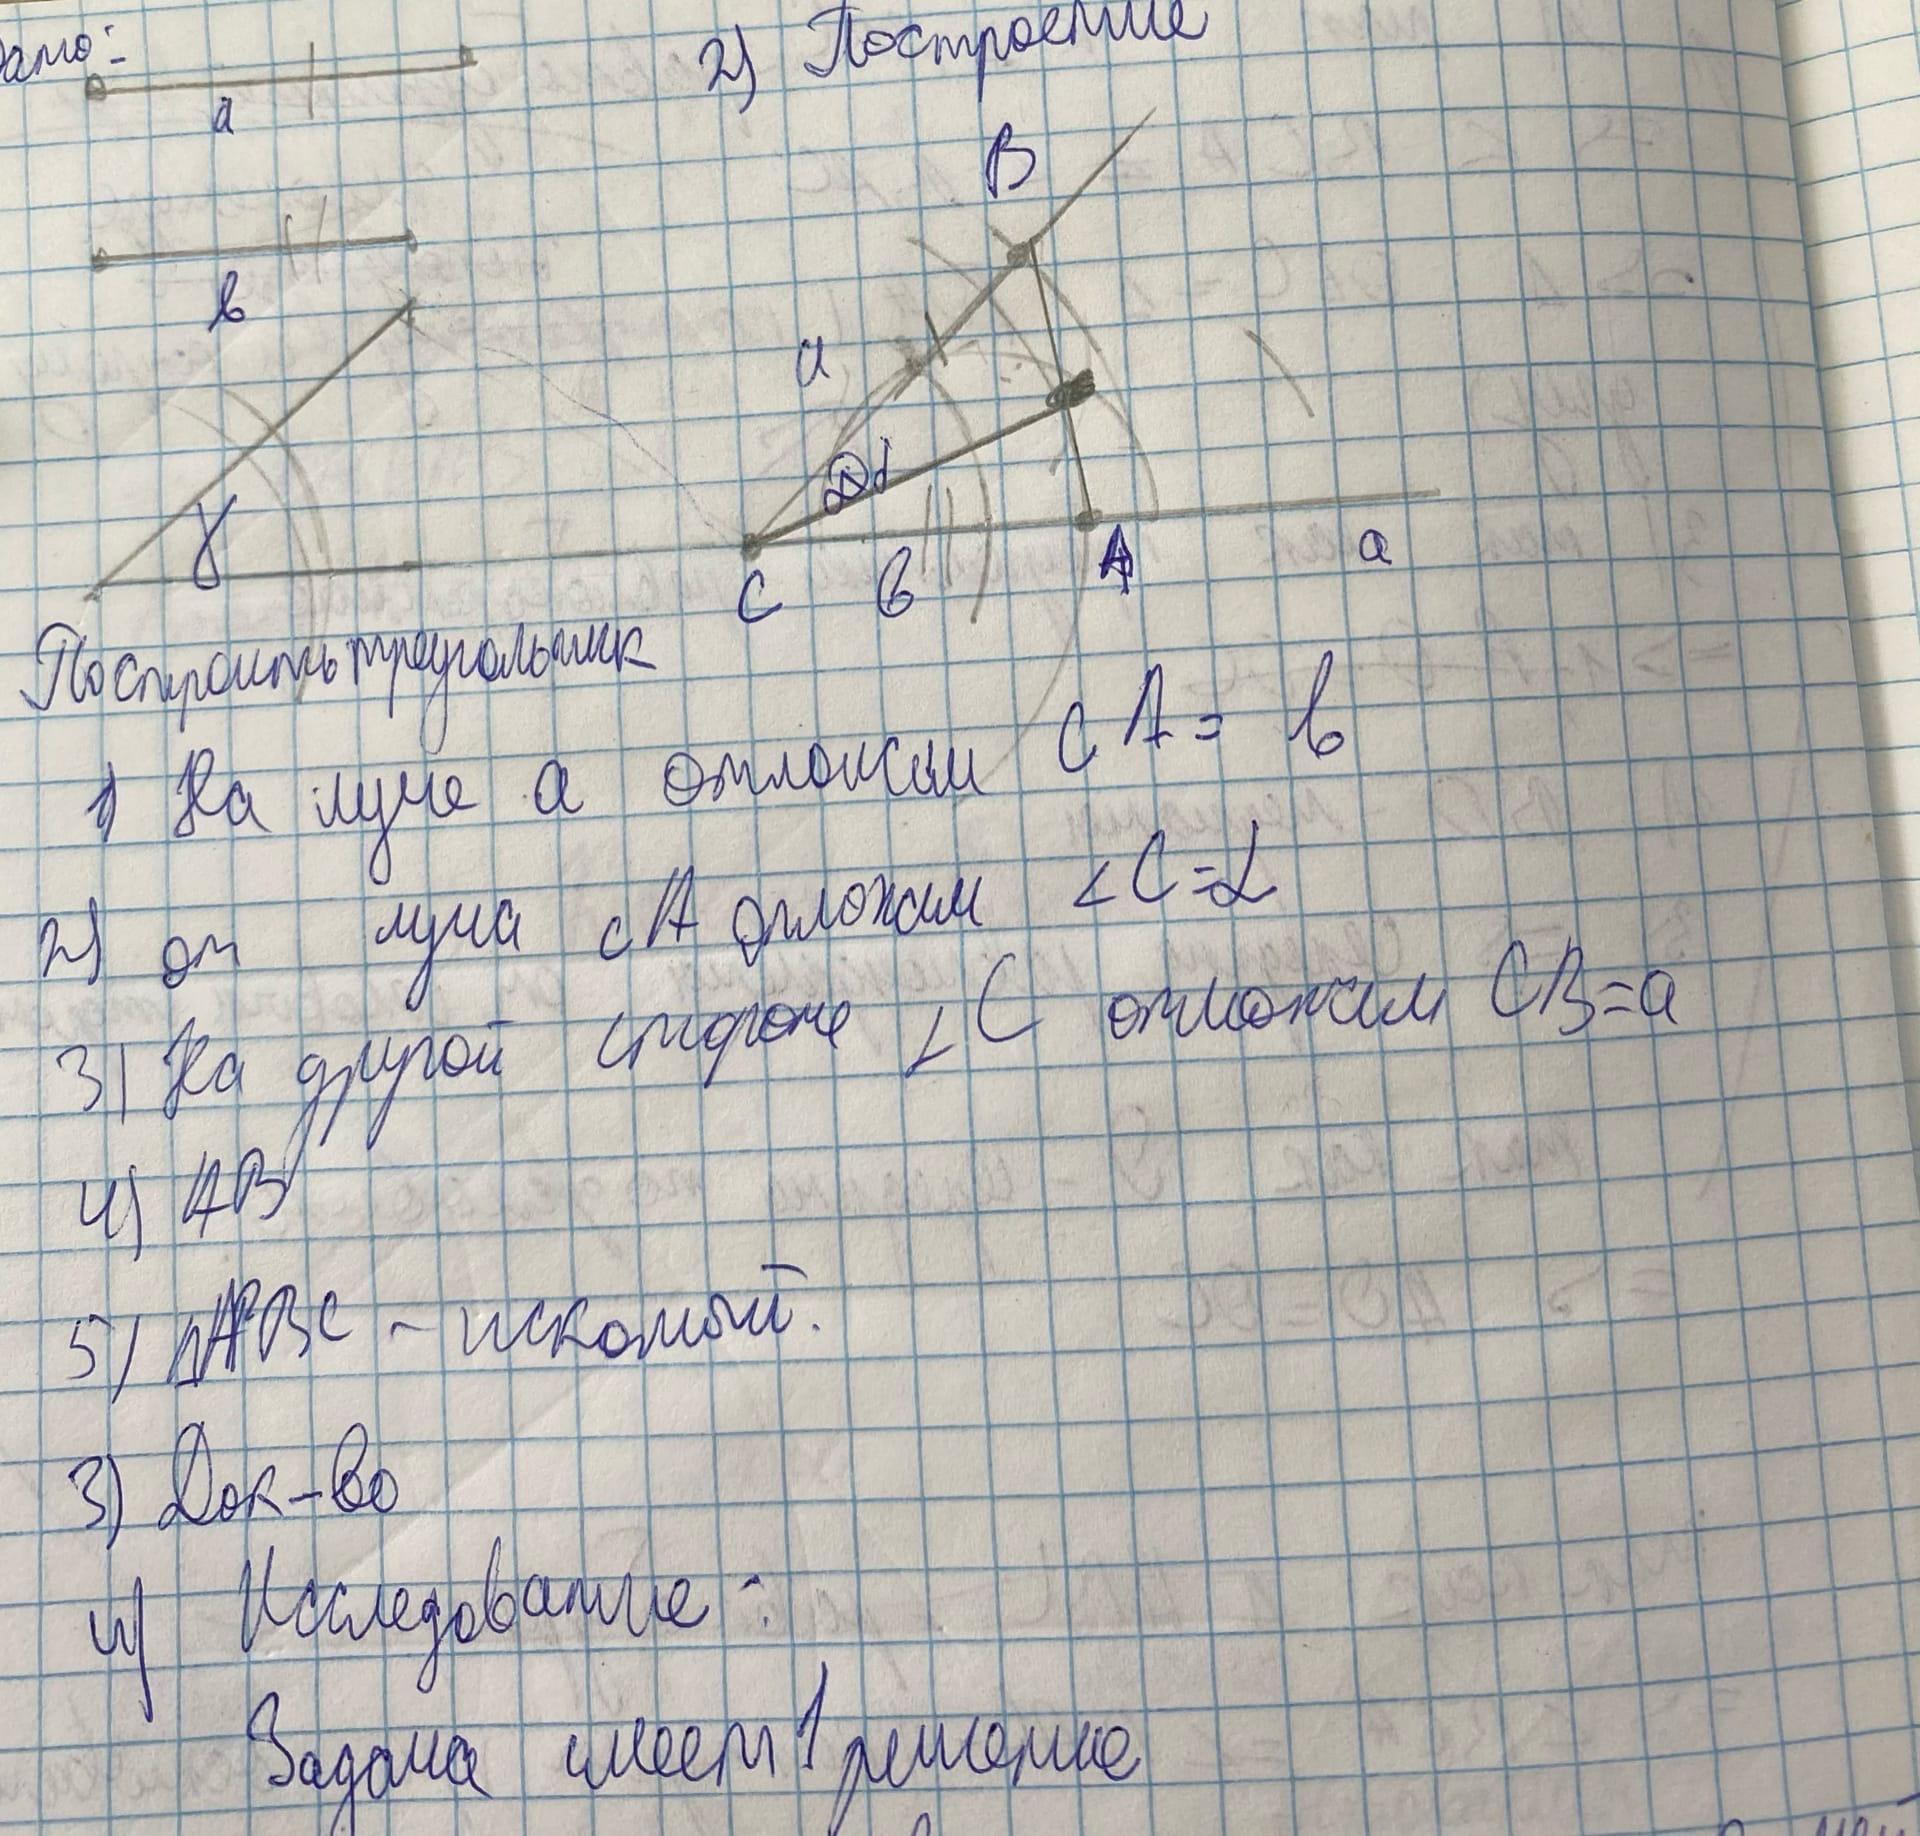 Дано:
a
b
γ
2) Построение
B
a
α
C
b
A
a
Построить треугольник
1) На луче a отложим CA = b
2) от луча CA отложим ∠C=α
3) На другой стороне ∠C отложим CB=a
4) AB
5) △ABC – искомый.
3) Док-во
4) Исследование:
Задача имеет 1 решение